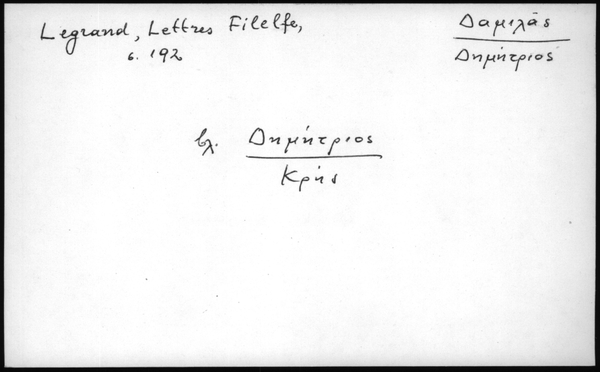 Legrand, Lettres Filelfe,
σ. 192
Δαμιλᾶς
Δημήτριος
βλ. Δημήτριος
Κρής